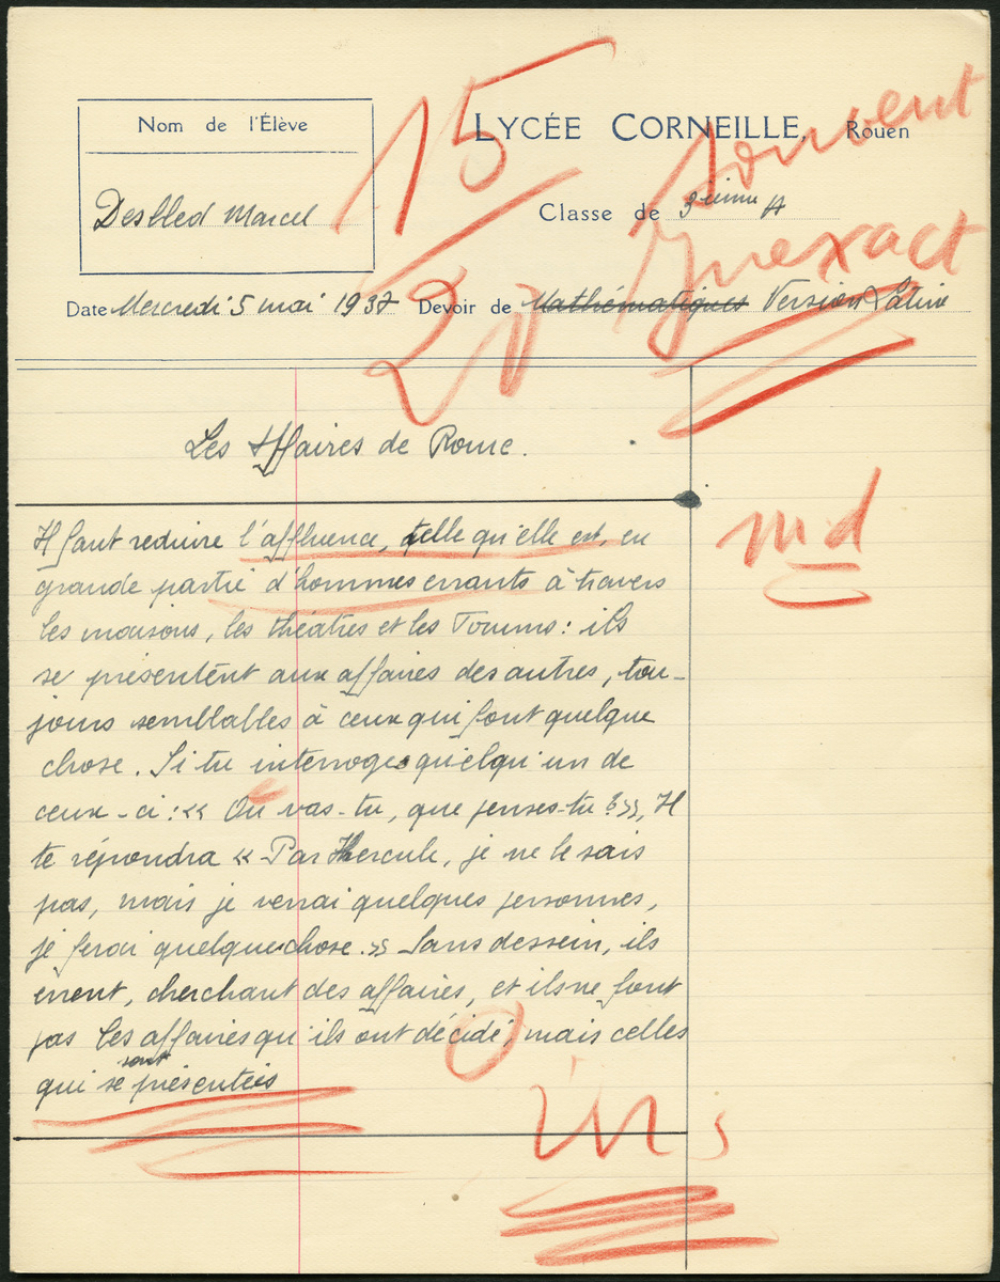 Nom de l'Élève
LYCÉE CORNEILLE, Rouen
Desbled Marcel
Classe de 3ième A
Date Mercredi 5 mai 1937 Devoir de Mathématiques Version Latine
15
20
souvent
Inexact
Les Affaires de Rome.
md
Il faut reduire l'affluence, telle qu'elle est, en
grande partie d'hommes errants à travers
les maisons, les théâtres et les Forums: ils
se présentent aux affaires des autres, tou-
jours semblables à ceux qui font quelque
chose. Si tu interroges quelqu'un de
ceux-ci: << Ou vas-tu, que penses-tu? >>, Il
te répondra << Par Hercule, je ne le sais
pas, mais je verrai quelques personnes,
je ferai quelque chose. >> Sans dessein, ils
errent, cherchant des affaires, et ils ne font
pas les affaires qu'ils ont décidé, mais celles
qui se sont présentées
ins